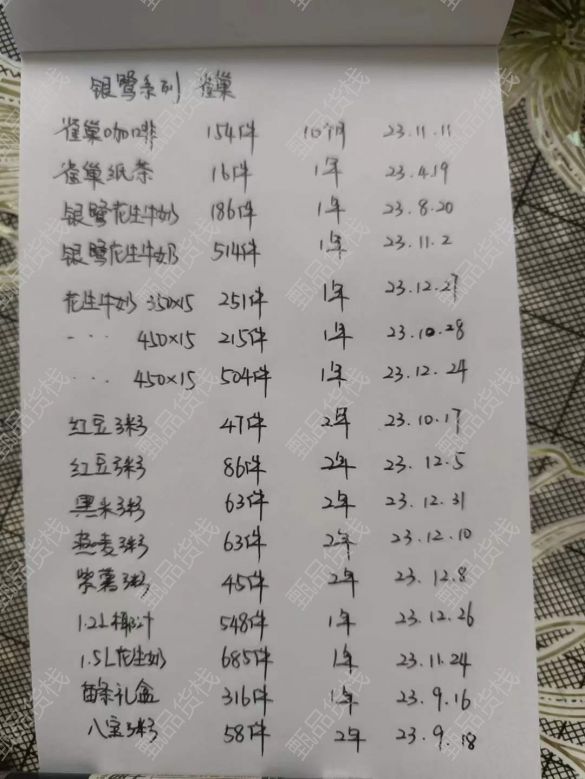 银鹭系列 雀巢
雀巢咖啡 154件 10个月 23.11.11
雀巢纸条 16件 1年 23.4.19
银鹭花生牛奶 186件 1年 23.8.20
银鹭花生牛奶 514件 1年 23.11.2
花生牛奶 350×15 251件 1年 23.12.27
... 450×15 215件 1年 23.10.28
... 450×15 504件 1年 23.12.24
红豆粥 47件 2年 23.10.17
红豆粥 86件 2年 23.12.5
黑米粥 63件 2年 23.12.31
燕麦粥 63件 2年 23.12.10
紫薯粥 45件 2年 23.12.8
1.2L椰汁 548件 1年 23.12.26
1.5L花生奶 685件 1年 23.11.24
礼盒 316件 1年 23.9.16
八宝粥 58件 2年 23.9.18
甄品货栈